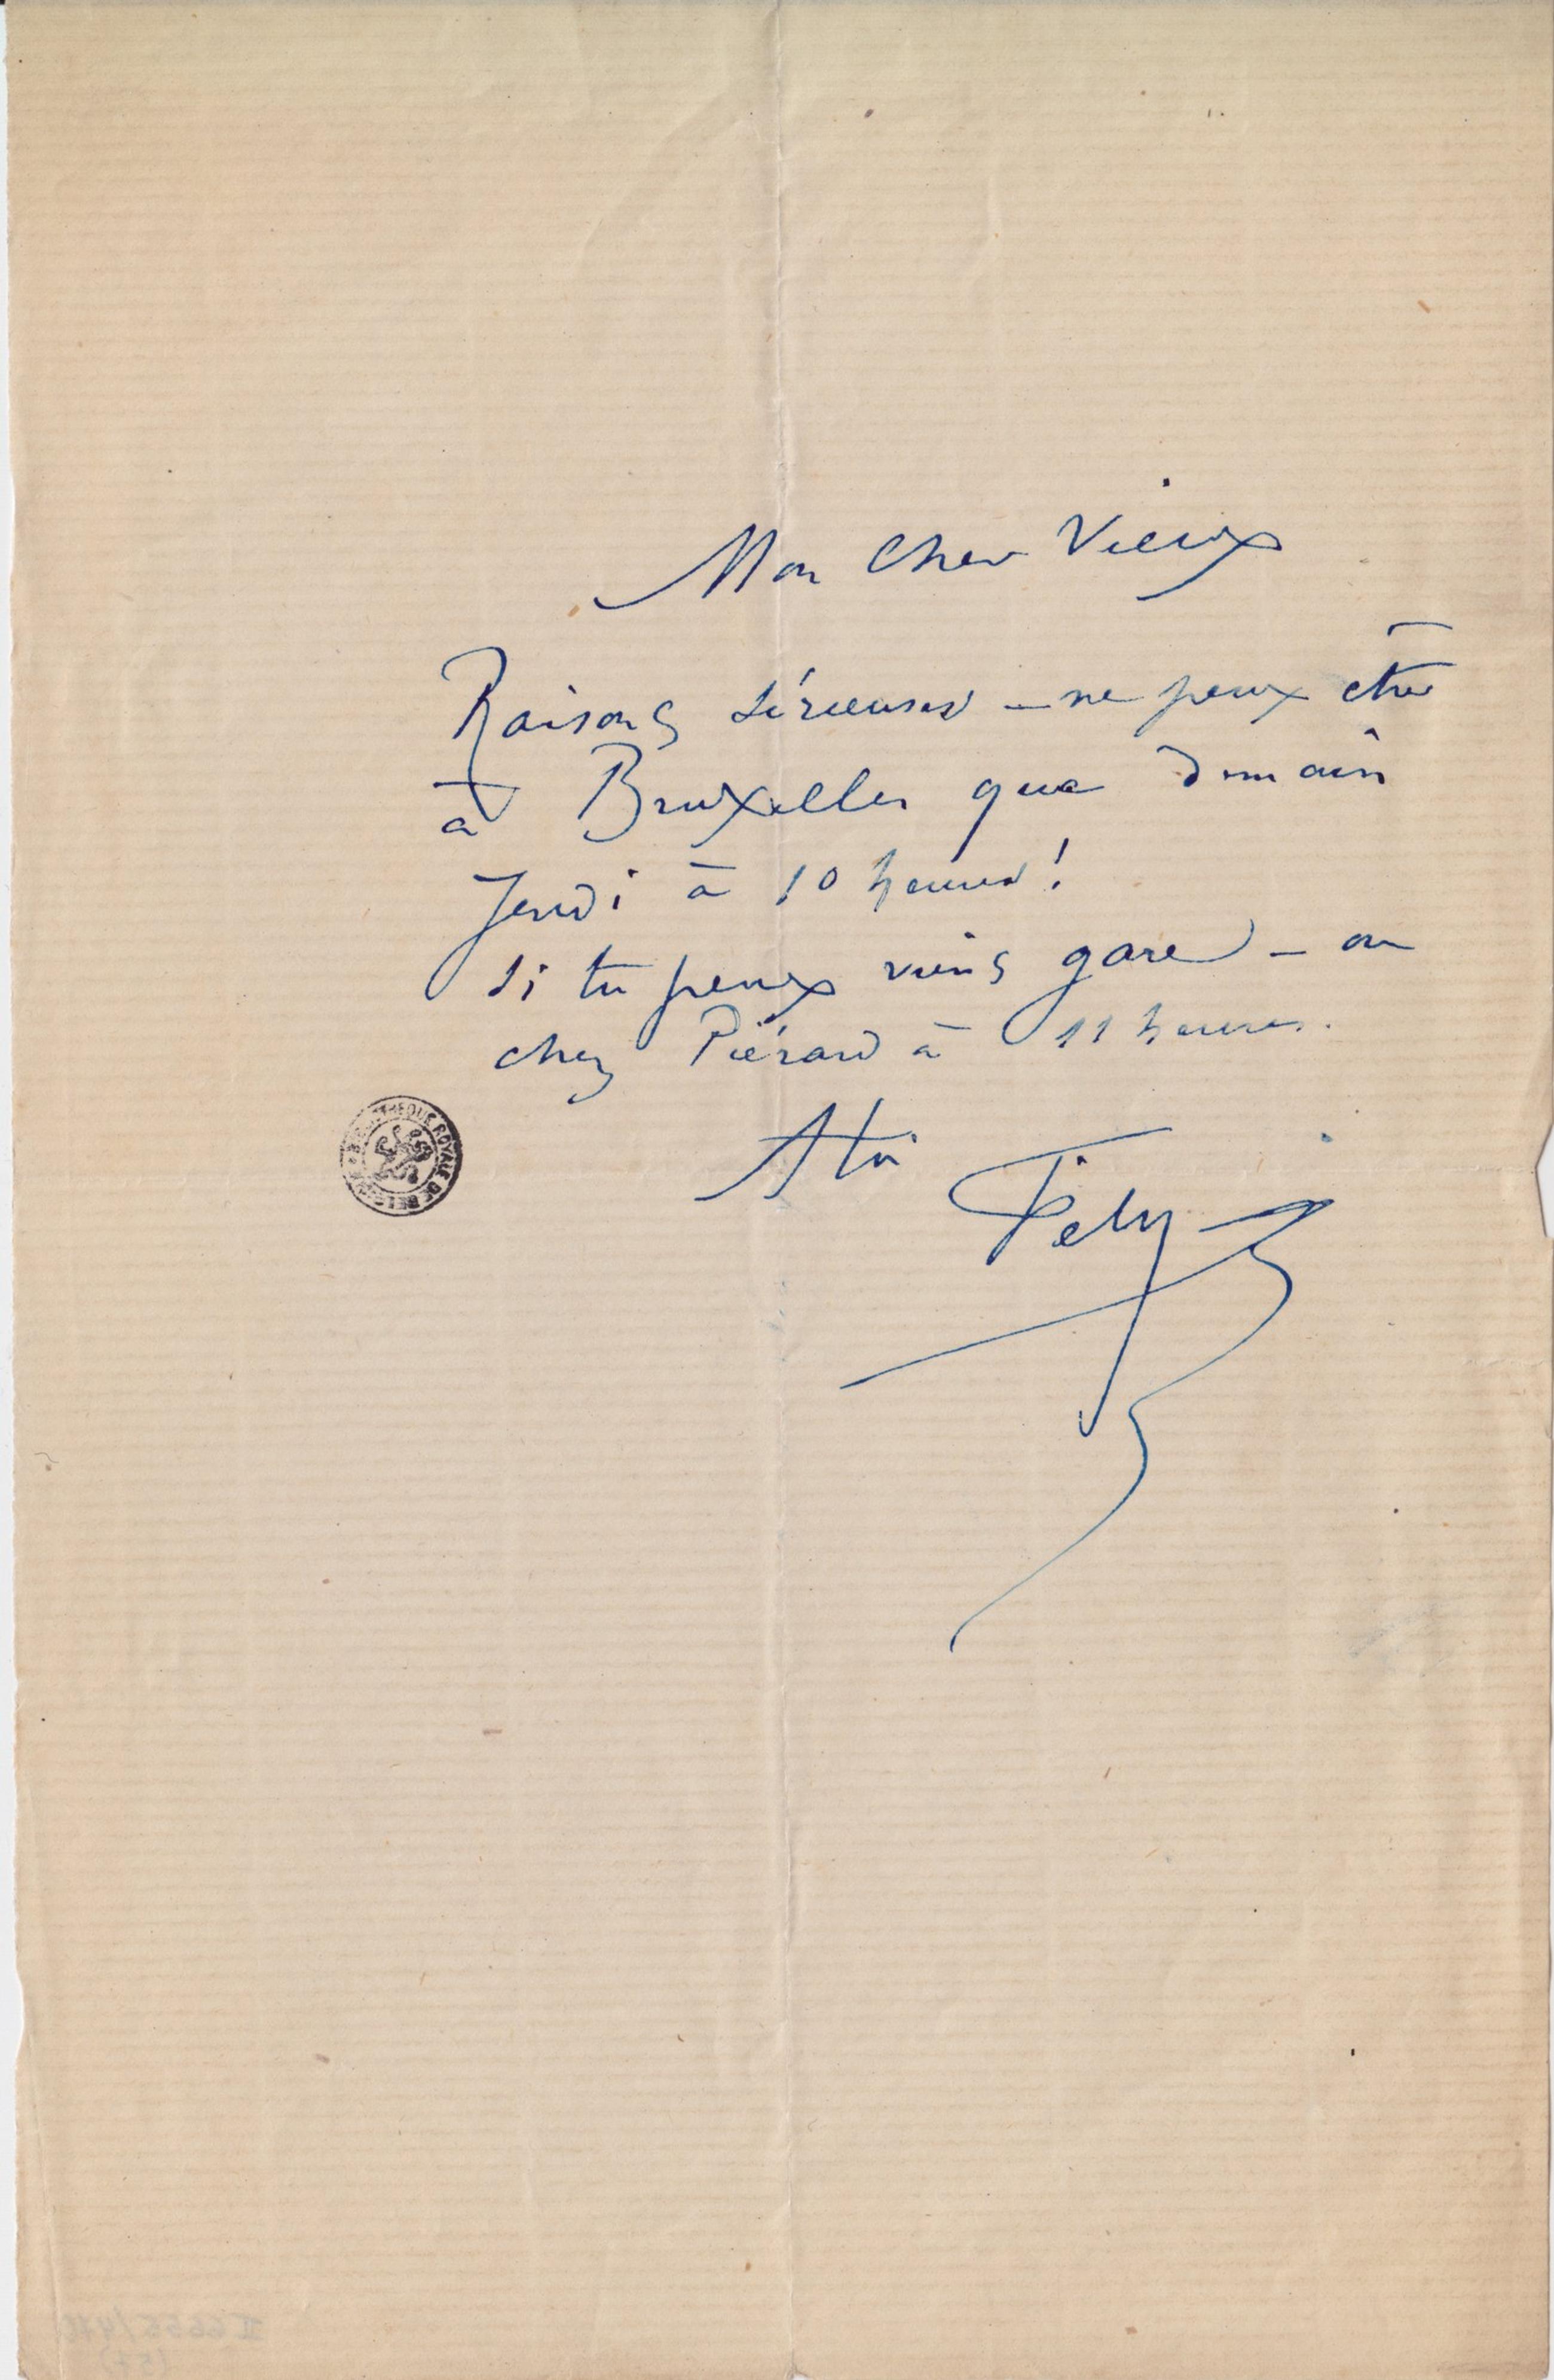 Mon cher Vieux
Raisons sérieuses – ne peux être
à Bruxelles que demain
Jeudi à 10 heures!
Si tu peux viens gare – ou
chez Piérard à 11 heures.
A toi
Fély
BIBLIOTHEQUE ROYALE DE BELGIQUE